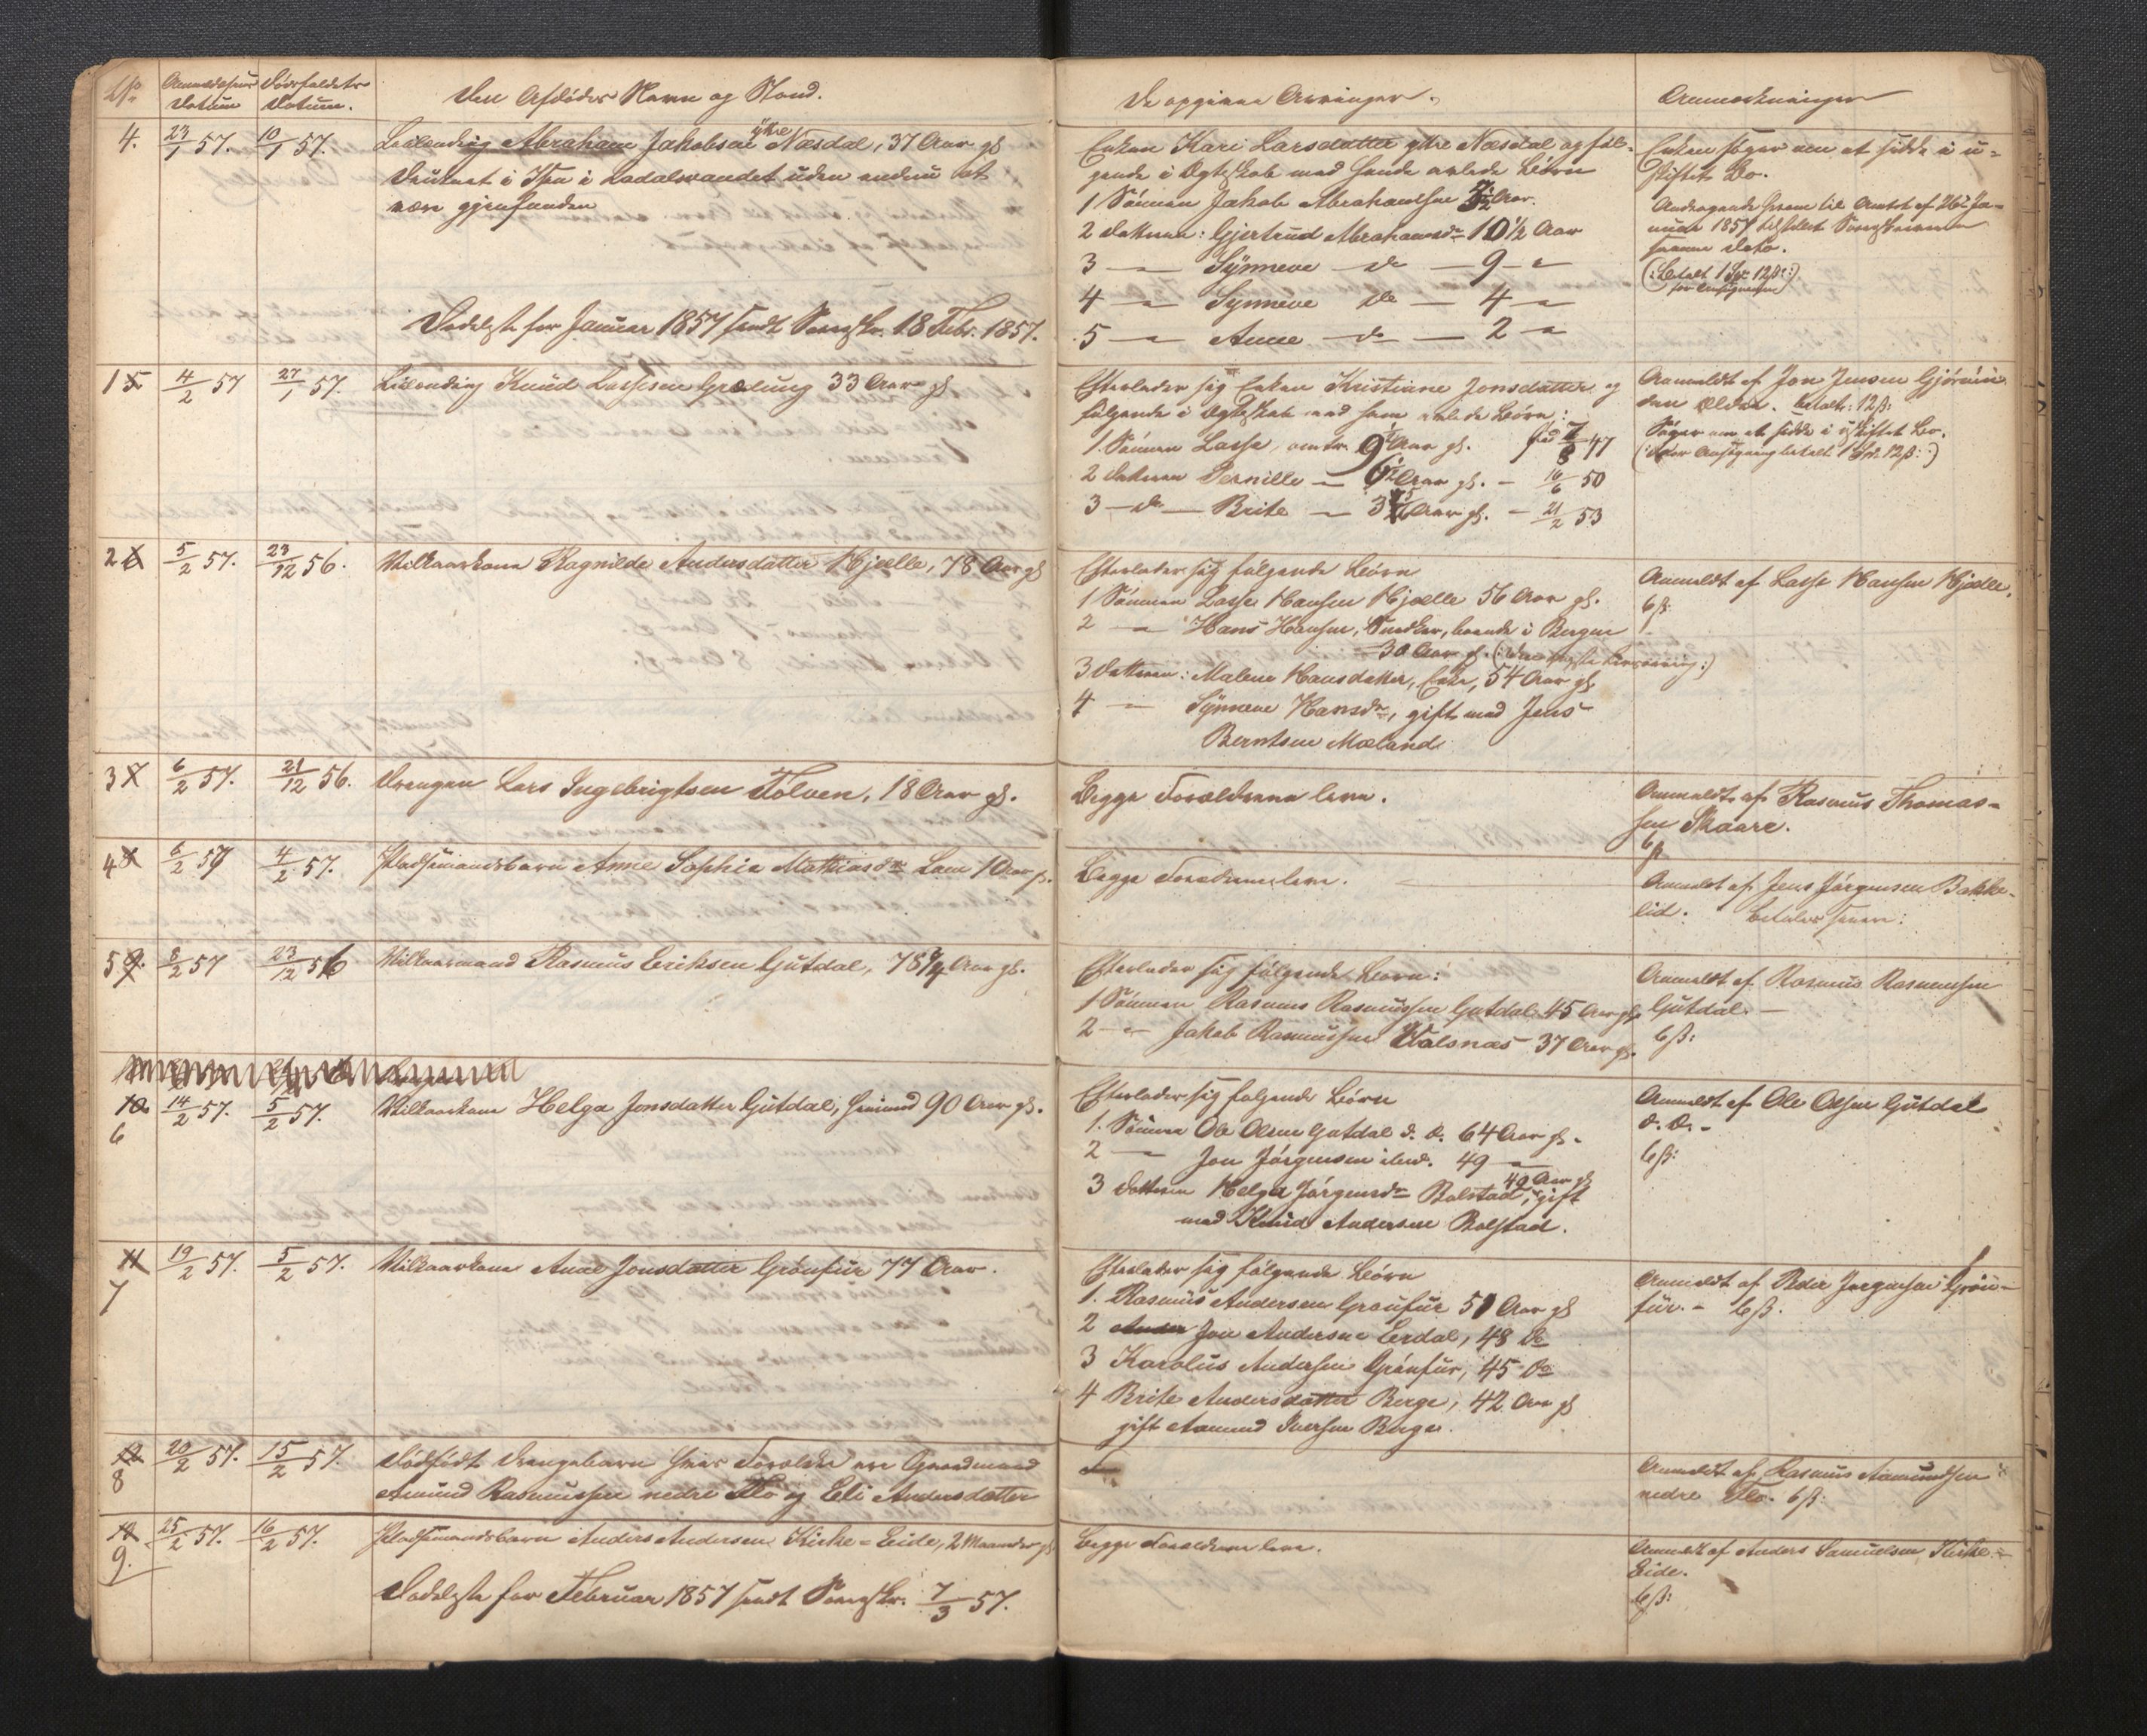 No. Anmeldelsens Datum Dödsfaldets Datum. Den Afdödes Navn og Stand. De opgivne Arvinger. Anmærkninger
4. 23/1 57. 10/1 57. Leilænding Abraham Jakobsen ytre Næsdal, 37 Aar gl.
druknet i Isen i Lodalsvandet uden endnu at
være gjenfunden
Enken Kari Larsdatter ytre Næsdal og föl-
gende i Ægteskab med hende avlede Börn
1 Sönnen Jakob Abrahamsen Aar.
2 Datteren: Gjertrud Abrahamsdr 10 1/2 Aar
3 — Synneve — Dr — 9 — "
4 — Synneve Dr — 4 — "
5 — Anne — Dr — 2 — "
Enken söger om at sidde i u-
skiftet Bo.
Andragende herom til Amtet af 26de Ja-
nuar 1857 tilstillet Sorenskriveren
samme Dato.
(: Betalt 1 Spd 12 ß :)
Dödsliste for Januar 1857 sendt Sorenskr. 18 Febr. 1857.
1 5 4/2 57 27/1 57. Leilænding Knud Lassesen Grædung 33 Aar gl.
Efterlader sig Enken Kristiane Jonsdatter og
fölgende i Ægteskab med ham avlede Börn:
1. Sönnen Lasse, omtr. 9 Aar gl. född 7/8 47
2 Datteren Pernille — 6 1/2 Aar gl. — 16/6 50
3 — Dr — Brite — 3 Aar gl. — 21/2 53
Anmeldt af Jon Jensen Gjörven
den Ældre. Betalt: 12 ß:
Söger om at sidde i uskiftet Bo.
2 6 5/2 57. 23/12 56. Vilkaarkone Ragnilde Andersdatter Hjælle, 78 Aar gl.
Efterlader sig fölgende Börn
1 Sönnen Lasse Hansen Hjælle 56 Aar gl.
2 — Hans Hansen, Snedker, boende i Bergen
30 Aar gl.
3 Datteren: Malene Hansdatter, Enke, 54 Aar gl.
4 — Synneve Hansdr, gift med Jens
Berntsen Mæland
Anmeldt af Lasse Hansen Hjælle.
6 ß:
3 7 6/2 57. 21/12 56. Drengen Lars Ingebrigtsen Tolven, 18 Aar gl.
Begge Forældrene leve.
Anmeldt af Rasmus Thomas-
sen Skaare.
6 ß
4 8 6/2 57 4/2 57. Pladsemandsbarn Anne Sophie Mathiasdr Loen 1 Aar gl.
Begge Forældrene leve.
Anmeldt af Jens Jörgensen Bakke-
lid. Betaler senere:
5 9. 8/2 57 23/12 56 Vilkaarmand Rasmus Eriksen Gutdal, 78 3/4 Aar gl.
Efterlader sig fölgende Börn:
1 Sönnen Rasmus Rasmussen Gutdal 45 Aar gl.
2 — Jakob Rasmussen Valsnæs 37 Aar gl.
Anmeldt af Rasmus Rasmussen
Gutdal. —
6 ß:
10 14/2 57. 5/2 57. Vilkaarkone Helga Jonsdatter Gutdal, henimod 90 Aar gl.
6
Efterlader sig fölgende Börn
1. Sönnen Ole Olsen Gutdal d. Æ. 64 Aar gl.
2 — Jon Jörgensen ibid. 49 —
3 Datteren Helga Jörgensdr Bolstad, 40 Aar gl. gift
med Knud Andersen Bolstad.
Anmeldt af Ole Olsen Gutdal
d. Æ. —
6 ß:
11 19/2 57. 5/2 57. Vilkaarkone Anne Jonsdatter Grönfur 77 Aar.
7
Efterlader sig fölgende Börn
1. Rasmus Andersen Grönfur 51 Aar gl.
2 Jon Andersen Eerdal, 48 Do
3 Karolus Andersen Grönfur, 45 Do
4 Brite Andersdatter Berge, 42 Aar gl.
gift Aamund Iversen Berge.
Anmeldt af Peder Jörgensen Grön-
fur. — 6 ß.
12 20/2 57. 15/2 57. Dödfödt Drengebarn hvis Forældre ere Gaardmand
8 Amund Rasmussen nedre Flo og Eli Andersdatter
Anmeldt af Rasmus Aamundsen
nedre Flo. 6 ß:
13 25/2 57. 16/2 57. Pladsemandsbarn Anders Andersen Kirke-Eide, 2 Maaneder gl.
9.
Begge Forældrene leve.
Anmeldt af Anders Samuelsen Kirke-
Eide.
6 ß:
Dödsliste for Februar 1857 sendt Sorenskr. 7/3 57.